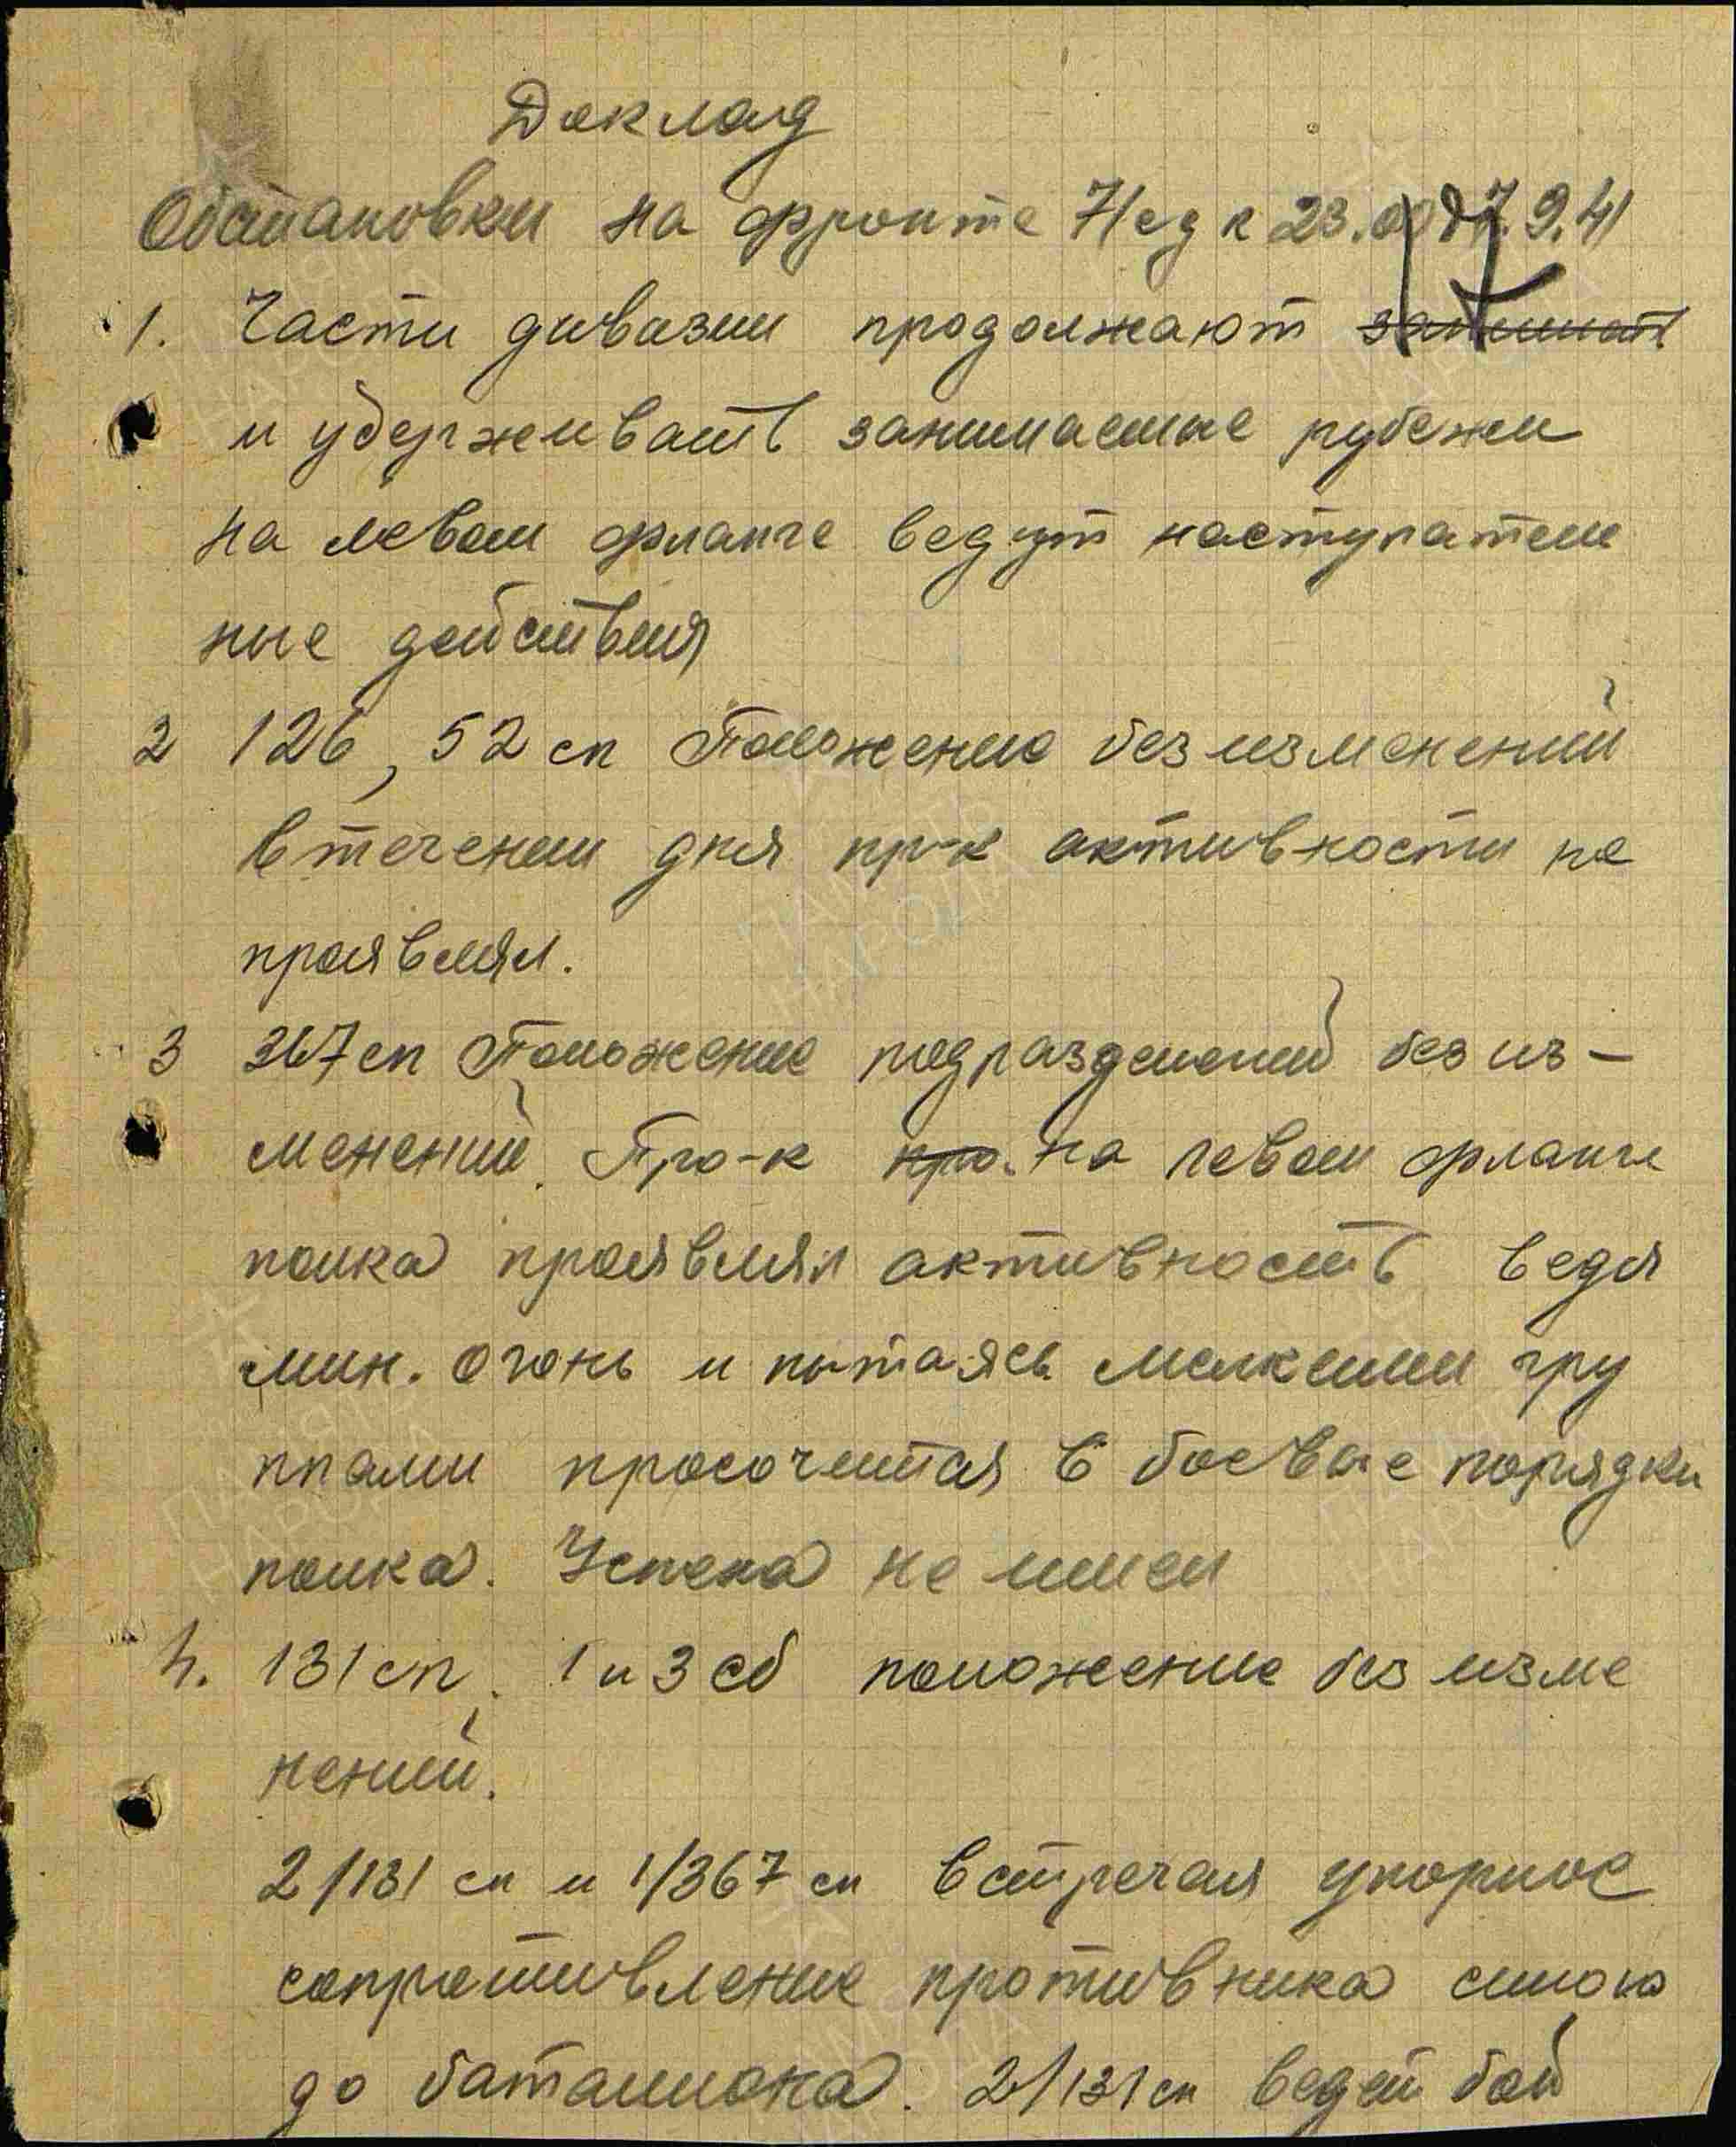 Доклад
Обстановки на фронте 71 сд к 23.00 7.9.41
17
1. Части дивизии продолжают занимать
и удерживать занимаемые рубежи
на левом фланге ведут наступатель
ные действия
2 126, 52 сп Положение без изменений
в течении дня пр-к активности не
проявлял.
3 367 сп Положение подразделений без из-
менений. Про-к про. на левом фланге
полка проявлял активность ведя
мин. огонь и пытаясь мелкими гру
ппами просочится в боевые порядки
полка. Успеха не имел
4. 131 сп. 1 и 3 сб положение без изме
нений.
2/131 сп и 1/367 сп встречая упорное
сопротивление противника силою
до баталиона. 2/131 сп ведет бой
ПАМЯТЬ НАРОДА